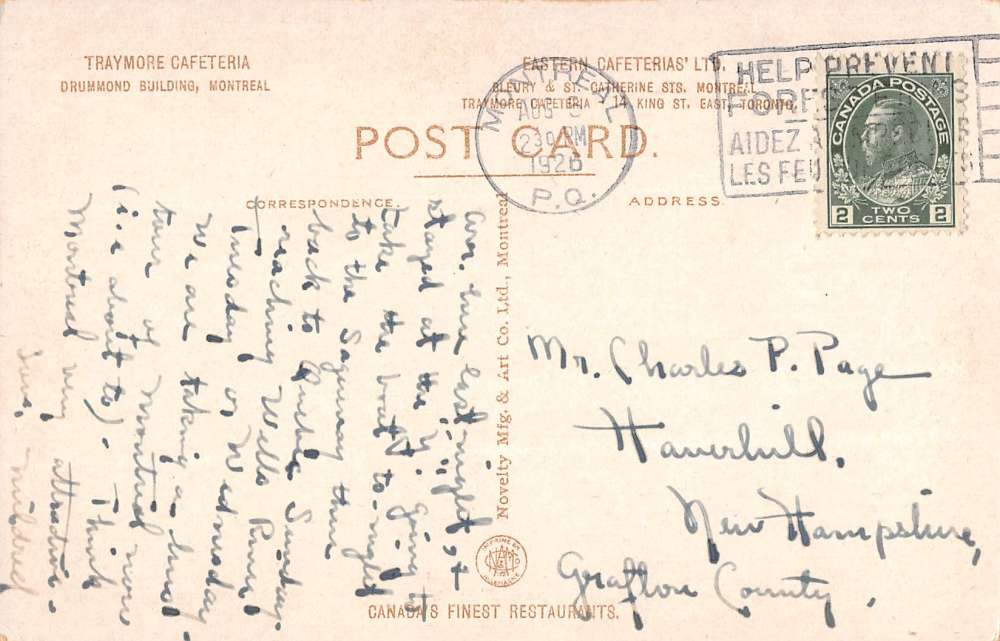 TRAYMORE CAFETERIA
DRUMMOND BUILDING, MONTREAL
EASTERN CAFETERIAS' LTD.
BLEURY & ST. CATHERINE STS. MONTREAL
TRAYMORE CAFETERIA 14 KING ST. EAST, TORONTO.
POST CARD.
CORRESPONDENCE.
ADDRESS
MONTREAL
AUG
230 PM
1926
P.Q.
HELP PREVENT
FOREST
AIDEZ A
LES FEU
CANADA POSTAGE
2 TWO CENTS 2
Arr. here last night, +
stayed at the Y. Going to
take the boat to-night
to the Saguenay then
back to Quebec Sunday.
reaching Wells River
Tuesday or Wednesday.
We are taking a bus
tour of Montreal now
(i.e about to). Think
Montreal very attractive.
Mildred
Novelty Mfg. & Art Co. Ltd., Montreal
Mr. Charles P. Page
Haverhill,
New Hampshire,
Grafton County.
CANADA'S FINEST RESTAURANTS.